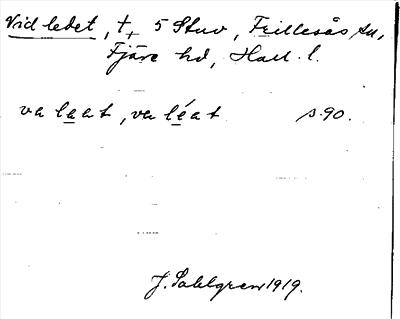 Vid ledet, t, 5 Stuv, Frillesås sn,
Fjäre hd, Hall. l.
va laat, va léat s. 90.
J. Sahlgren 1919.